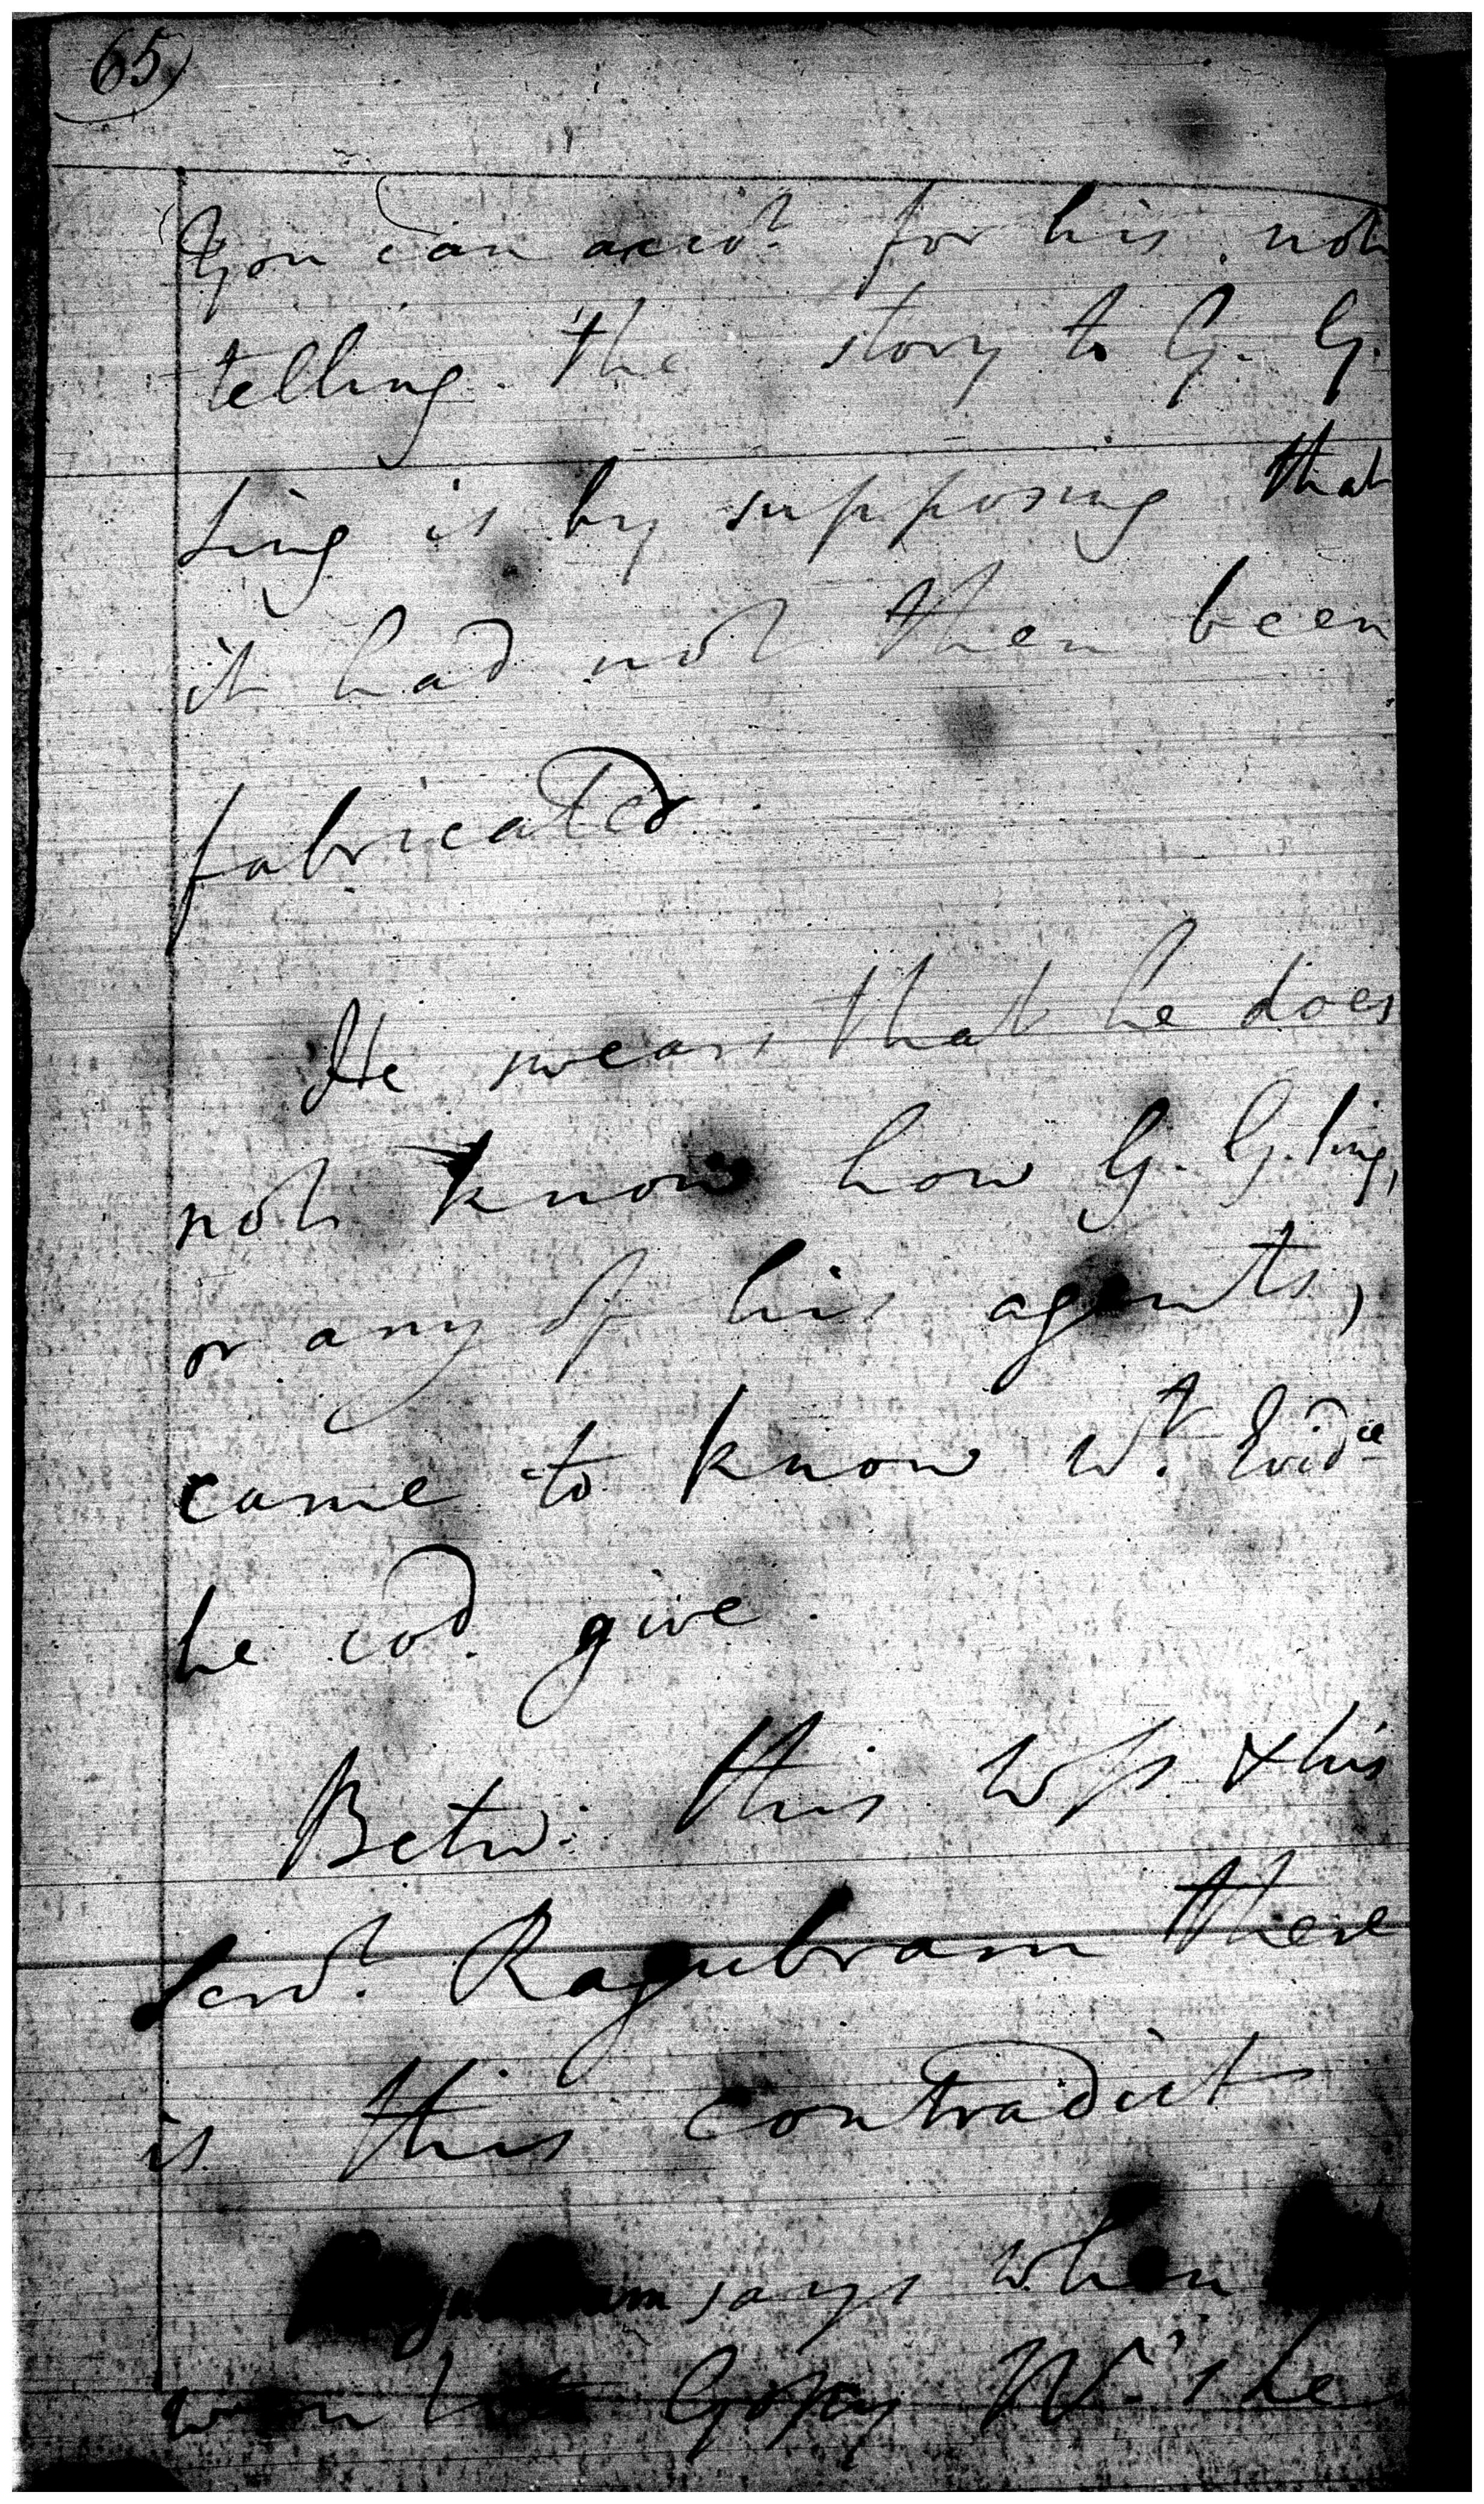 65)
You can acco.t for his not
telling the story to G. G.
Sing is by supposing that
it had not then been
fabricated.
He swears that he does
not know how G. G. Sing,
or any of his agents,
came to know w.t Evid.ce
he cod. give.
Betw. this Wss. & his
Serv.t Ragubram there
is this contradict
says when
Gopey N.'s he